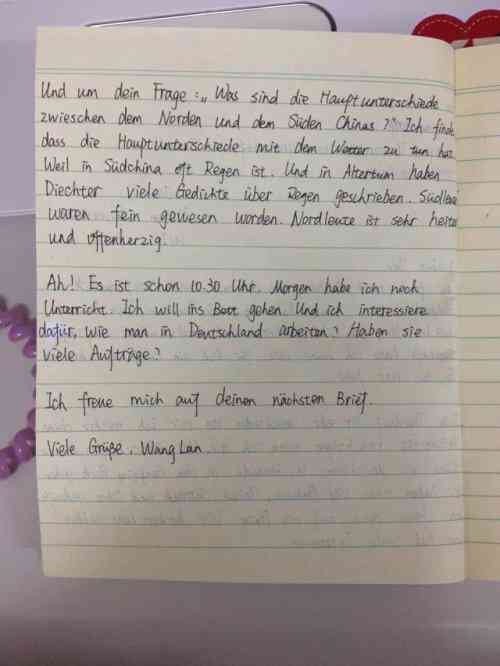 Und um dein Frage: „Was sind die Hauptunterschiede
zwieschen dem Norden und dem Süden Chinas?" Ich finde
dass die Hauptunterschiede mit dem Wetter zu tun hat
Weil in Südchina oft Regen ist. Und in Altertum haben
Diechter viele Gedichte über Regen geschrieben. Südleute
waren fein gewesen worden. Nordleute ist sehr heite
und offenherzig.
Ah! Es ist schon 10.30 Uhr. Morgen habe ich noch
Unterricht. Ich will ins Bett gehen. Und ich interessiere
dafür, wie man in Deutschland arbeiten? Haben sie
viele Aufträge?
Ich freue mich auf deinen nächsten Brief.
Viele Grüße, Wang Lan.